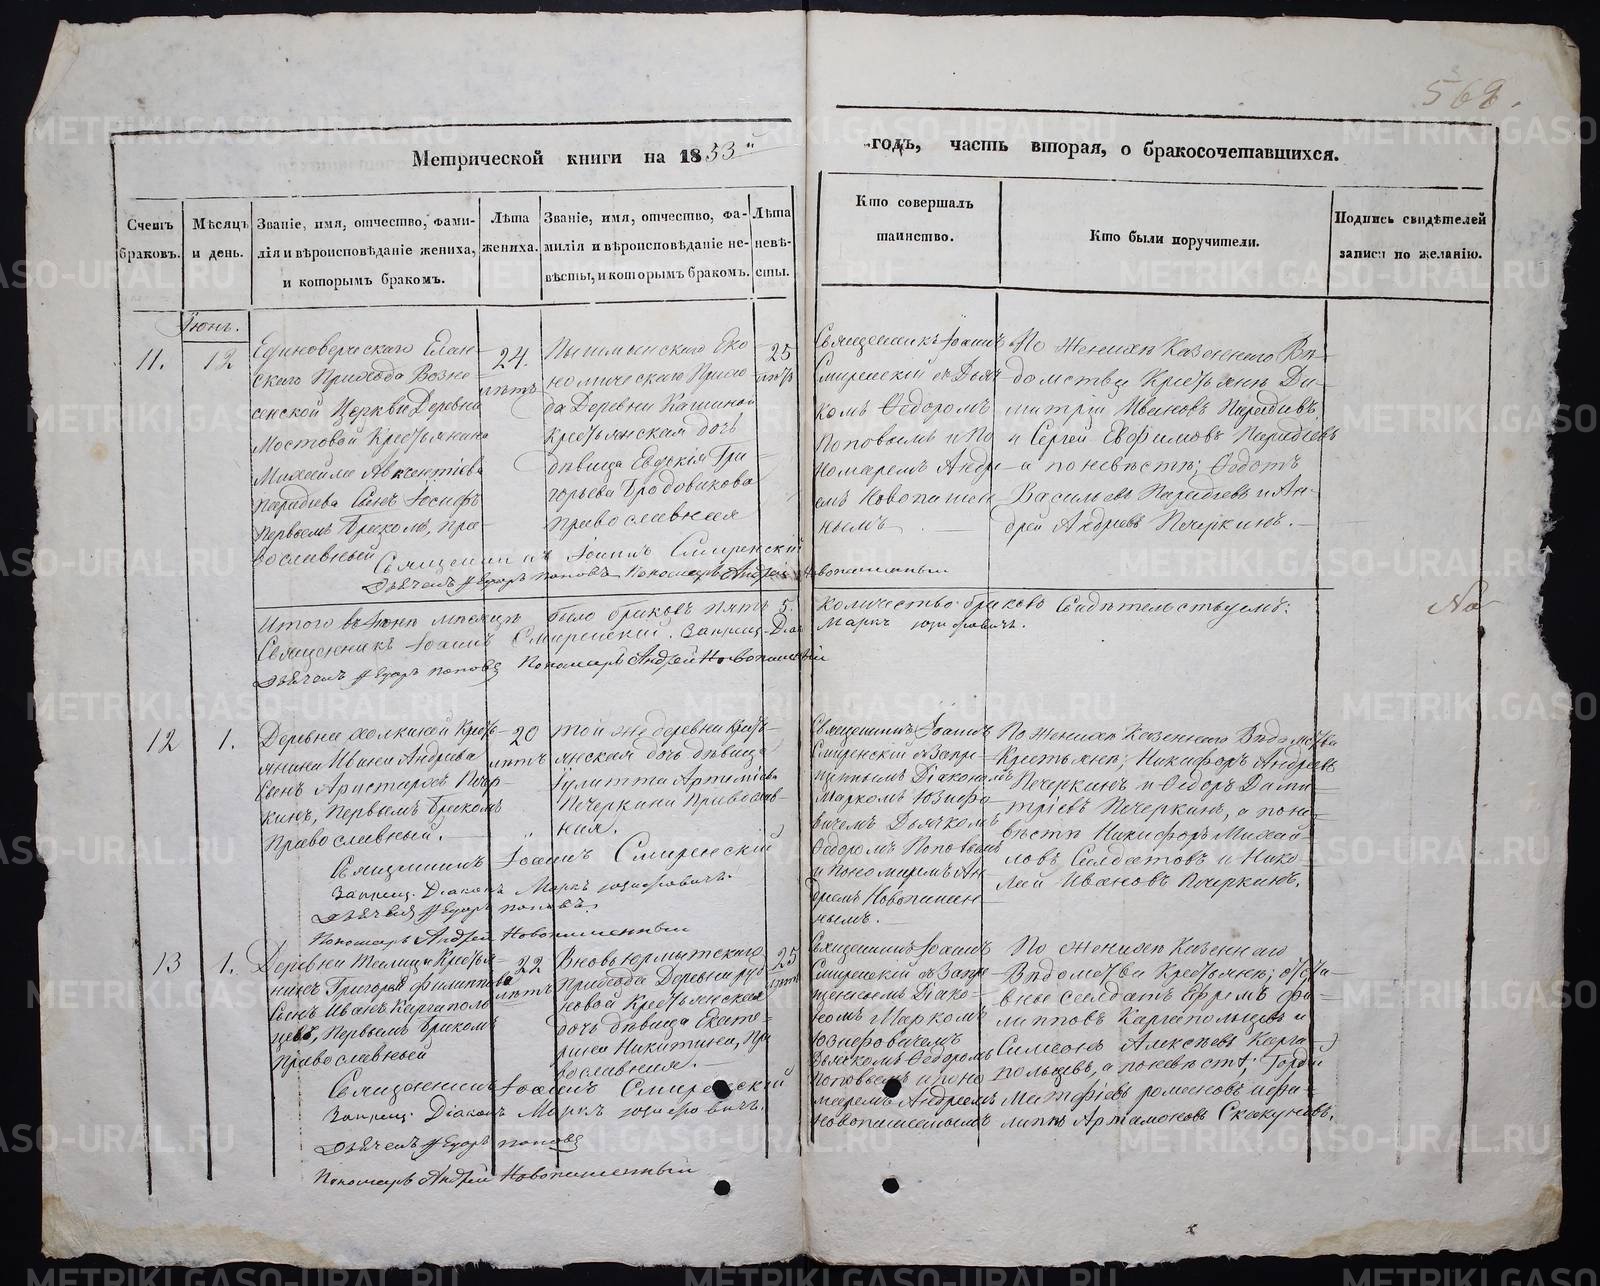 568.
Метрической книги на 1833й
годъ, часть вторая, о бракосочетавшихся.
Счетъ браковъ.
Мѣсяцъ и день.
Званіе, имя, отчество, фами-
лія и вѣроисповѣданіе жениха,
и которымъ бракомъ.
Лѣта
жениха.
Званіе, имя, отчество, фа-
милія и вѣроисповѣданіе не-
вѣсты, и которымъ бракомъ.
Лѣта
невѣ-
сты.
Кто совершалъ
таинство.
Кто были поручители.
Подпись свидѣтелей
записи по желанію.
Іюнь.
11.
12
Единоверческаго Елан-
скаго Прихода Возне-
сенской Церкви Деревни
Мостовой Крестьянина
Михайла Авксентіева
Парадѣева Сынъ Іосифъ
Первымъ Бракомъ, пра-
вославный
24.
лѣтъ
Пышминскаго Эко-
номическаго Прихо-
да Деревни Кашиной
Крестьянская дочь
дѣвица Евдокія Гри-
горьева Бродовикова
православная
25
лѣтъ
Священникъ Іоаннъ
Смиренскій съ Дьяч-
комъ Ѳедоромъ
Поповымъ и По
номаремъ Андре-
емъ Новопашен
нымъ
По Женихѣ Казеннаго Вѣ-
домства Крестьяне Ди-
митрій Ивановъ Парадѣевъ,
и Сергей Евфимовъ Парадѣевъ
а по невѣстѣ; Ѳедотъ
Васильевъ Парадѣевъ и Ан-
дрей Андреевъ Печеркинъ.
Священникъ Іоаннъ Смиренскій
Дьячекъ Ѳедоръ Поповъ Пономарь Андрей Новопашенный
Итого въ Іюнѣ мѣсяцѣ было браковъ пять 5. Количество браковъ Свидѣтельствуемъ:
Священникъ Іоаннъ Смиренскій. Запрещ. Діаконъ Маркъ Юзифовичь.
Дьячекъ Ѳедоръ Поповъ Пономарь Андрей Новопашенный
12
1.
Деревни Холкиной Кресть-
янина Ивана Андреева
Сынъ Аристархъ Печер-
кинъ, Первымъ Бракомъ
Православный.
20
лѣтъ
той же деревни кресть-
янская дочь дѣвица
Іулитта Артеміева
Печеркина Православ-
ная.
Священникъ Іоаннъ
Смиренскій съ Запре-
щеннымъ Діакономъ
Маркомъ Юзифо-
вичемъ Дьячкомъ
Ѳедоромъ Поповымъ
и Пономаремъ Ан
дреемъ Новопашен
нымъ.
По Женихѣ Казеннаго Вѣдомства
Крестьяне; Никифоръ Андреевъ
Печеркинъ и Ѳедоръ Дими-
тріевъ Печеркинъ, а по не-
вѣстѣ Никифоръ Михай-
ловъ Солдатовъ и Нико-
лай Ивановъ Печеркинъ.
Священникъ Іоаннъ Смиренскій
Запрещ. Діаконъ Маркъ Юзифовичь.
Дьячекъ Ѳедоръ Поповъ.
Пономарь Андрей Новопашенный
13
1.
Григорей Филиппова
Сынъ Иванъ Каргаполо
цевъ, Первымъ Бракомъ
Православный
22
лѣтъ
Вновьюрмытскаго
Прихода Деревни
новой Крестьянская
дочь дѣвица Екате-
рина Никитина, Пра
вославная.
25
лѣтъ
Священникъ Іоаннъ
Смиренскій съ Запре
щеннымъ Діако-
номъ Маркомъ
Юзифовичемъ
Дьячкомъ Ѳедоромъ
Поповымъ и поно
маремъ Андреемъ
Новопашеннымъ
По Женихѣ Казеннаго
Вѣдомства Крестьяне; отста-
вные солдатъ Ефремъ Фи-
липповъ Каргапольцевъ и
Симеонъ Алексѣевъ Карга
польцевъ, а по невѣстѣ; Гордѣй
Матфѣевъ Романовъ и Фи-
липпъ Артамоновъ Скакуновъ.
Священникъ Іоаннъ Смиренскій
Запрещ. Діаконъ Маркъ Юзифовичь.
Дьячекъ Ѳедоръ Поповъ
Пономарь Андрей Новопашенный
METRIKI.GASO-URAL.RU